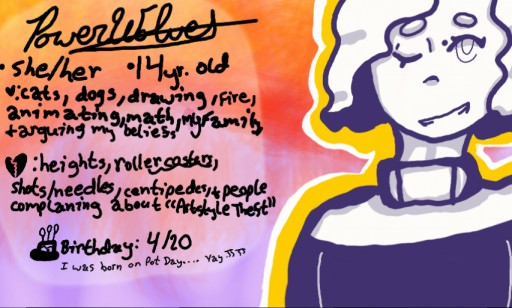 PowerWolves
• she/her • 14 yr. old
♥: cats, dogs, drawing, fire,
animating, math, my family,
+ arguing my beliess,
💔: heights, roller coasters,
shots/needles, centipedes, + people
complaning about "Artstyle Thest"
Birthday: 4/20
I was born on Pot Day.... Yay